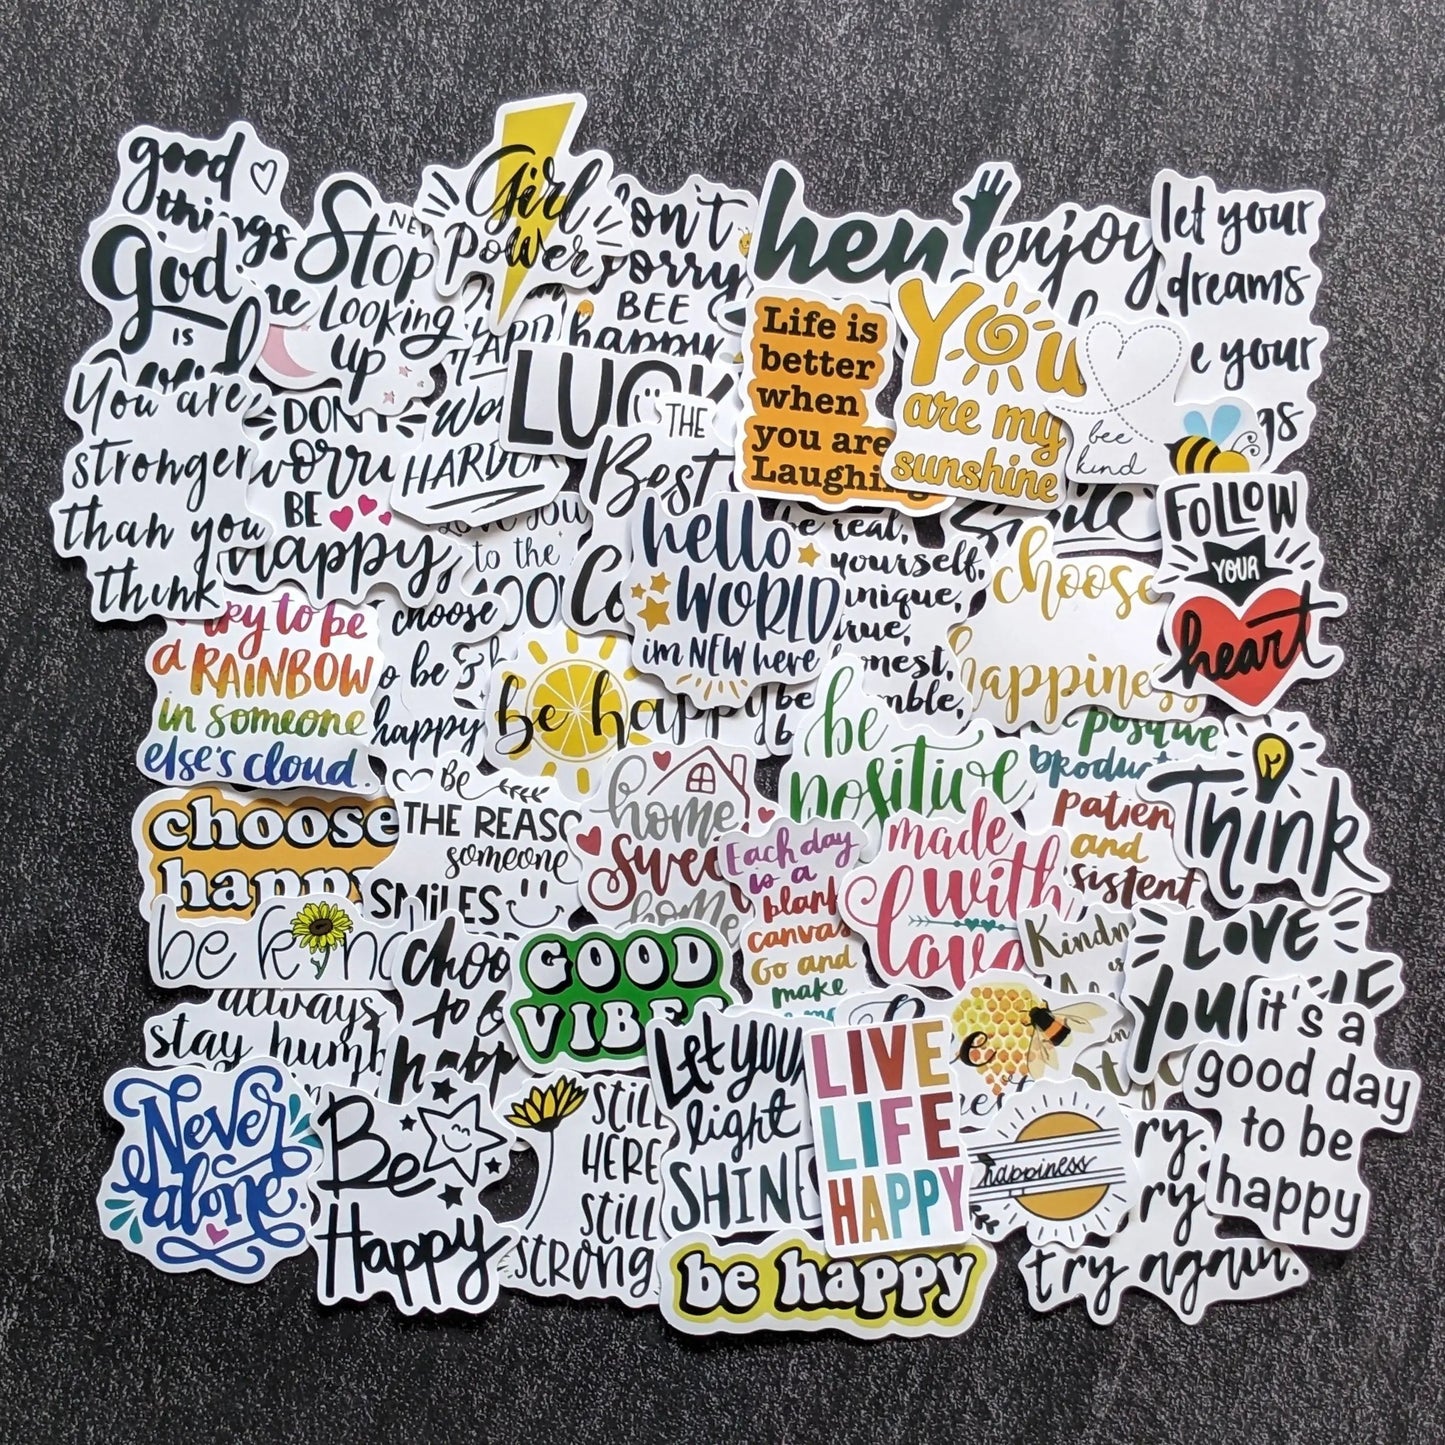 good
things
God
IS
You are
stronger
than you
think
NEV
Stop
Looking
up
Girl
Power
on't
orry
BEE
happy
hey
enjoy
let your
dreams
e your
gs
DON'T
worry
BE
happy
Work
HARDER
LUCK
THE
Best
Life is
better
when
you are
Laughing
You
are my
sunshine
bee
kind
FOLLOW
YOUR
heart
Love you
to the
hello
WORLD
im NEW here
be real,
yourself,
unique,
true,
honest,
humble,
be
Smile
choose
happiness
try to be
a RAINBOW
in someone
else's cloud.
choose
to be
happy
be happy
be
positive
positive
product
patien
and
sistent
Think
choose
happy
Be
THE REASO
someone
SMILES
home
sweet
home
Each day
is a
blank
canvas
Go and
make
made
with
love
Kindn
is
LOVE
YOU
be kind
always
stay humb
choo
to b
happ
GOOD
VIBES
it's a
good day
to be
happy
Never
alone.
Be
Happy
STILL
HERE
STILL
STRONG
Let your
light
SHINE
LIVE
LIFE
HAPPY
happiness
ry.
ry
try again.
be happy